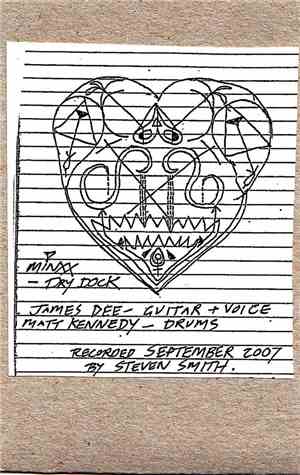 MINXX
- DRY DOCK
JAMES DEE - GUITAR + VOICE
MATT KENNEDY - DRUMS
RECORDED SEPTEMBER 2007
BY STEVEN SMITH.